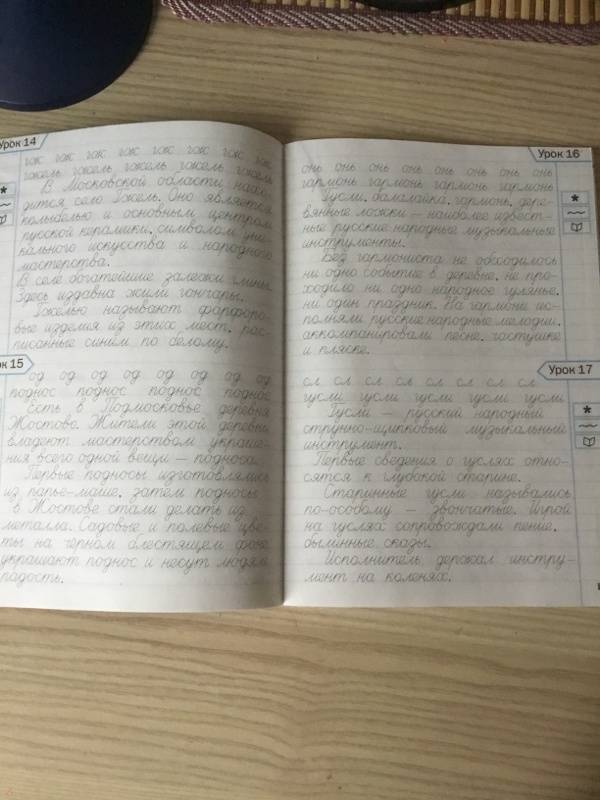 Урок 14
гж гж гж гж гж гж гж гж
гжель гжель гжель гжель гжель
В Московской области нахо-
дится село Гжель. Оно является
колыбелью и основным центром
русской керамики, символом уни-
кального искусства и народного
мастерства.
В селе богатейшие залежи глины.
Здесь издавна жили гончары.
Гжелью называют фарфоро-
вые изделия из этих мест, рас-
писанные синим по белому.
ок 15
од од од од од од од од
поднос поднос поднос поднос
Есть в Подмосковье деревня
Жостово. Жители этой деревни
владеют мастерством украше-
ния всего одной вещи — подноса.
Первые подносы изготовлялись
из папье-маше, затем подносы
в Жостове стали делать из
металла. Садовые и полевые цве-
ты на чёрном блестящем фоне
украшают поднос и несут людям
радость.
Урок 16
онь онь онь онь онь онь онь онь
гармонь гармонь гармонь гармонь
Гусли, балалайка, гармонь, дере-
вянные ложки — наиболее извест-
ные русские народные музыкальные
инструменты.
Без гармониста не обходилось
ни одно событие в деревне, не про-
ходило ни одно народное гулянье,
ни один праздник. На гармони ис-
полняли русские народные мелодии,
аккомпанировали песне, частушке
и пляске.
Урок 17
сл сл сл сл сл сл сл сл
гусли гусли гусли гусли гусли
Гусли — русский народный
струнно-щипковый музыкальный
инструмент.
Первые сведения о гуслях отно-
сятся к глубокой старине.
Старинные гусли назывались
по-особому — звончатые. Игрой
на гуслях сопровождали пение,
былинные сказы.
Исполнитель держал инстру-
мент на коленях.